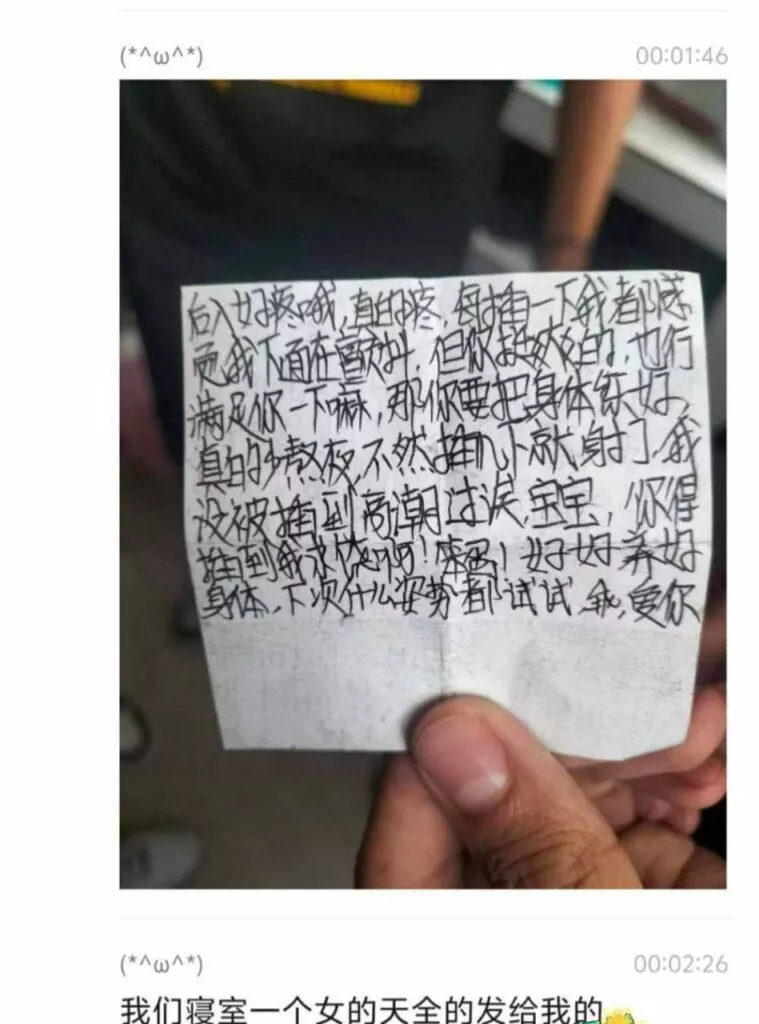 (*^ω^*) 00:01:46
后入好疼哦,真的疼,每插一下我都感
觉我下面在,但你挺爽的,也行
满足你一下嘛,那你要把身体练好
真的少熬夜,不然插几下就射了,我
没被插到高潮过诶,宝宝,你得
插到我求饶啊!来吧!好好养好
身体,下次什么姿势都试试,我,爱你
(*^ω^*) 00:02:26
我们寝室一个女的天全的发给我的